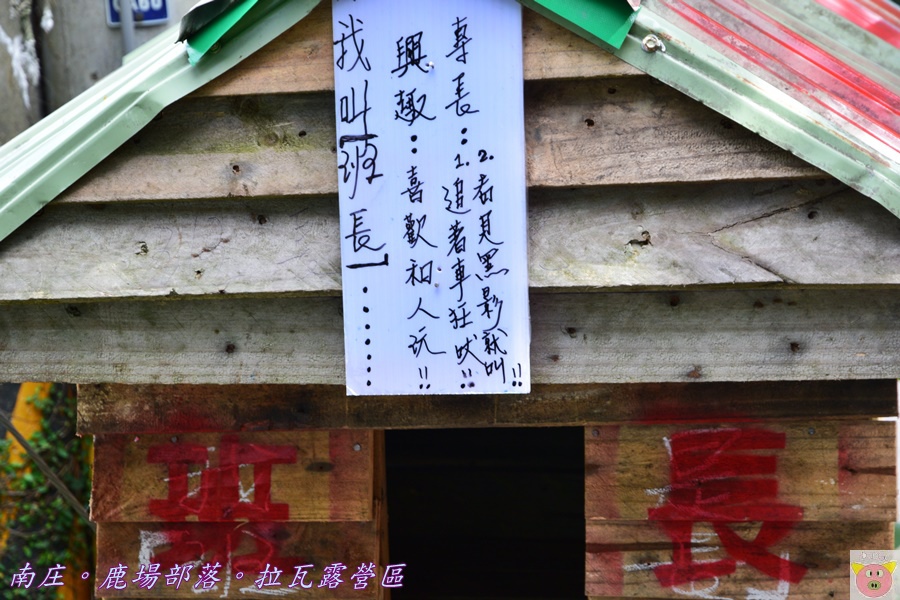 我叫「班長」⋯⋯
興趣：喜歡和人玩!!
專長：1.追著車狂吠!!
2.看見黑影就叫!!
班長
南庄。鹿場部落。拉瓦露營區